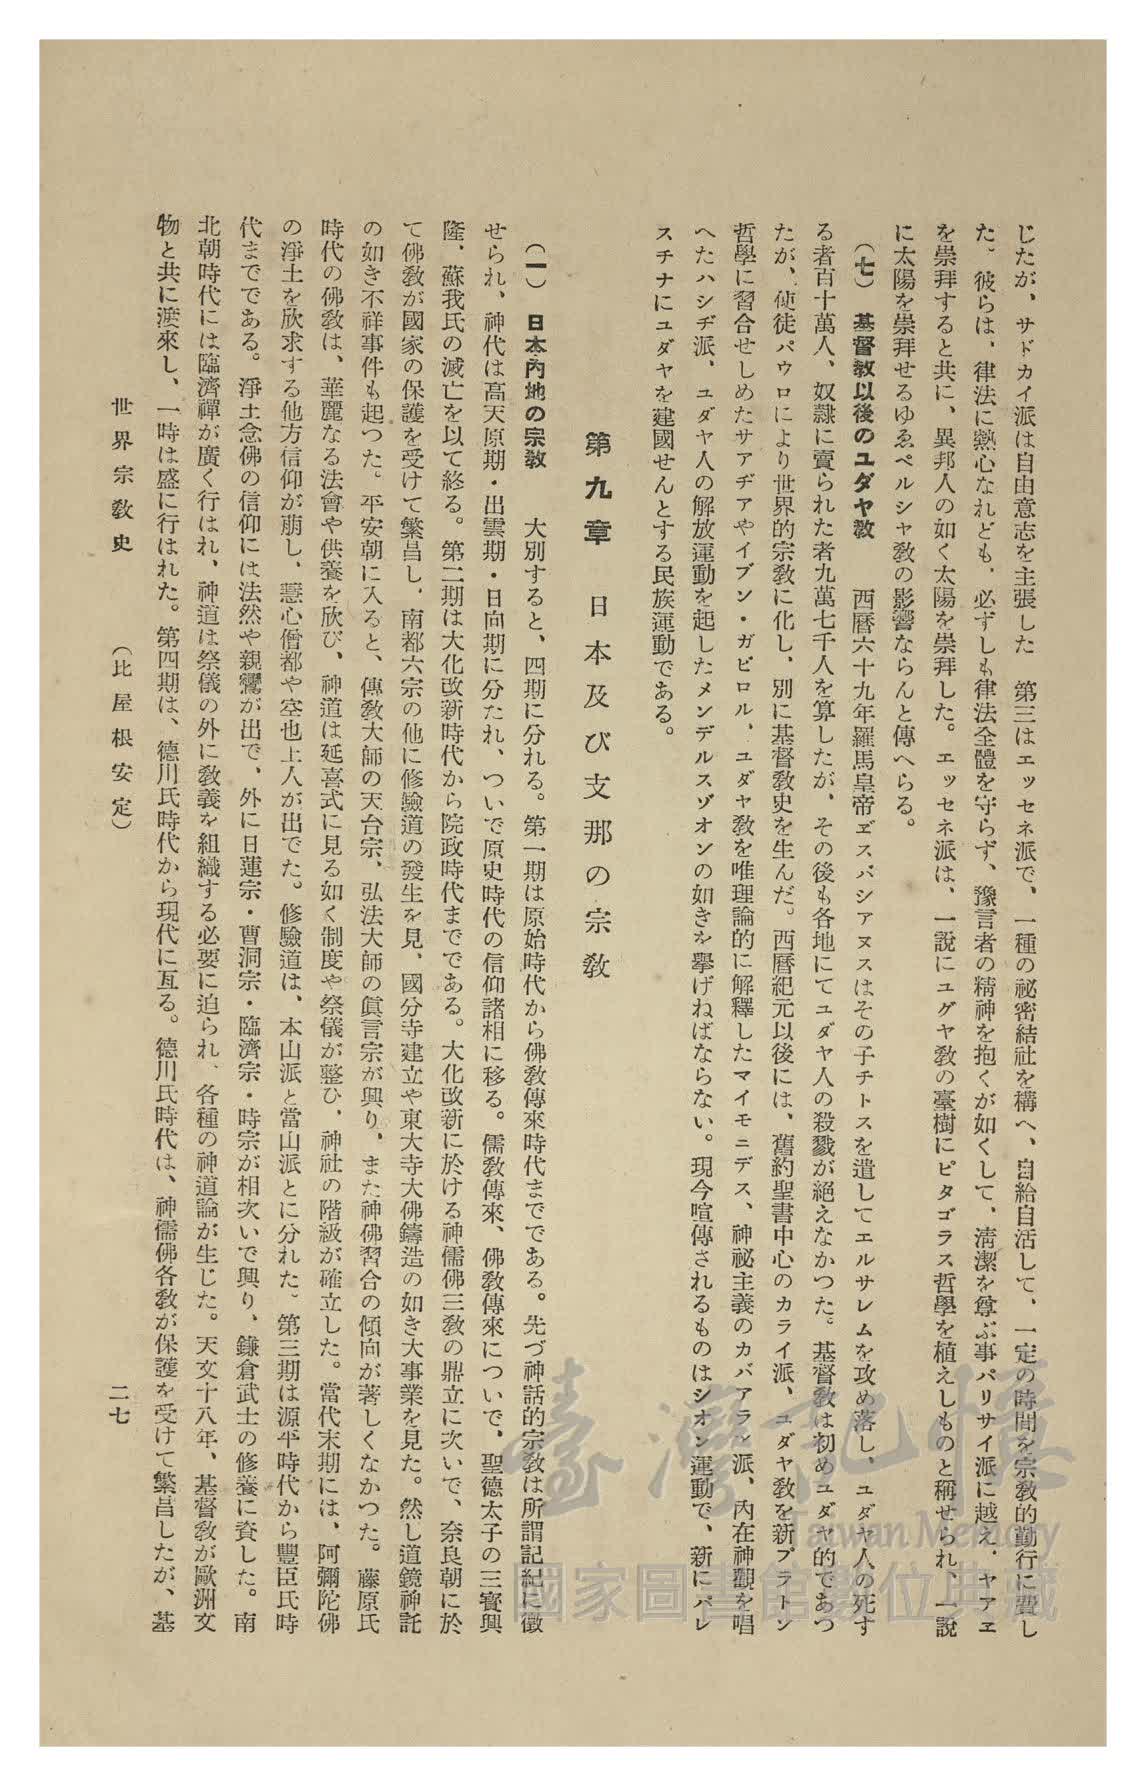 じたが、サドカイ派は自由意志を主張した　第三はエッセネ派で、一種の祕密結社を構へ、自給自活して、一定の時間を宗教的勤行に費し
た。彼らは、律法に熱心なれども、必ずしも律法全體を守らず、豫言者の精神を抱くが如くして、清潔を尊ぶ事パリサイ派に越え、ヤアヱ
を崇拜すると共に、異邦人の如く太陽を崇拜した。エッセネ派は、一説にユダヤ教の臺樹にピタゴラス哲學を植えしものと稱せられ、一説
に太陽を崇拜せるゆゑペルシャ教の影響ならんと傳へらる。
（七）　基督教以後のユダヤ教　西曆六十九年羅馬皇帝ヹスパシアヌスはその子チトスを遣してエルサレムを攻め落し、ユダヤ人の死す
る者百十萬人、奴隷に賣られた者九萬七千人を算したが、その後も各地にてユダヤ人の殺戮が絕えなかつた。基督教は初めユダヤ的であつ
たが、使徒パウロにより世界的宗教に化し、別に基督教史を生んだ。西曆紀元以後には、舊約聖書中心のカライ派、ユダヤ教を新プラトン
哲學に習合せしめたサアヂアやイブン・ガビロル、ユダヤ教を唯理論的に解釋したマイモニデス、神祕主義のカバアラン派、內在神觀を唱
へたハシヂ派、ユダヤ人の解放運動を起したメンデルスゾオンの如きを擧げねばならない。現今喧傳されるものはシオン運動で、新にパレ
スチナにユダヤを建國せんとする民族運動である。
第九章　日本及び支那の宗教
（一）　日本內地の宗教　大別すると、四期に分れる。第一期は原始時代から佛教傳來時代までである。先づ神話的宗教は所謂記紀に徵
せられ、神代は高天原期・出雲期・日向期に分たれ、ついで原史時代の信仰諸相に移る。儒教傳來、佛教傳來について、聖德太子の三寶興
隆、蘇我氏の滅亡を以て終る。第二期は大化改新時代から院政時代までである。大化改新に於ける神儒佛三教の鼎立に次いで、奈良朝に於
て佛教が國家の保護を受けて繁昌し、南都六宗の他に修驗道の發生を見、國分寺建立や東大寺大佛鑄造の如き大事業を見た。然し道鏡神託
の如き不祥事件も起つた。平安朝に入ると、傳教大師の天台宗、弘法大師の眞言宗が興り、また神佛習合の傾向が著しくなかつた。藤原氏
時代の佛教は、華麗なる法會や供養を欣び、神道は延喜式に見る如く制度や祭儀が整ひ、神社の階級が確立した。當代末期には、阿彌陀佛
の淨土を欣求する他方信仰が萠し、慧心僧都や空也上人が出でた。修驗道は、本山派と當山派とに分れた。第三期は源平時代から豐臣氏時
代までである。淨土念佛の信仰には法然や親鸞が出で、外に日蓮宗・曹洞宗・臨濟宗・時宗が相次いで興り、鎌倉武士の修養に資した。南
北朝時代には臨濟禪が廣く行はれ、神道は祭儀の外に教義を組織する必要に迫られ、各種の神道論が生じた。天文十八年、基督教が歐洲文
物と共に渡來し、一時は盛に行はれた。第四期は、德川氏時代から現代に亙る。德川氏時代は、神儒佛各教が保護を受けて繁昌したが、基
世界宗敎史　（比屋根安定）　二七
臺灣記憶
Taiwan Memory
國家圖書館數位典藏